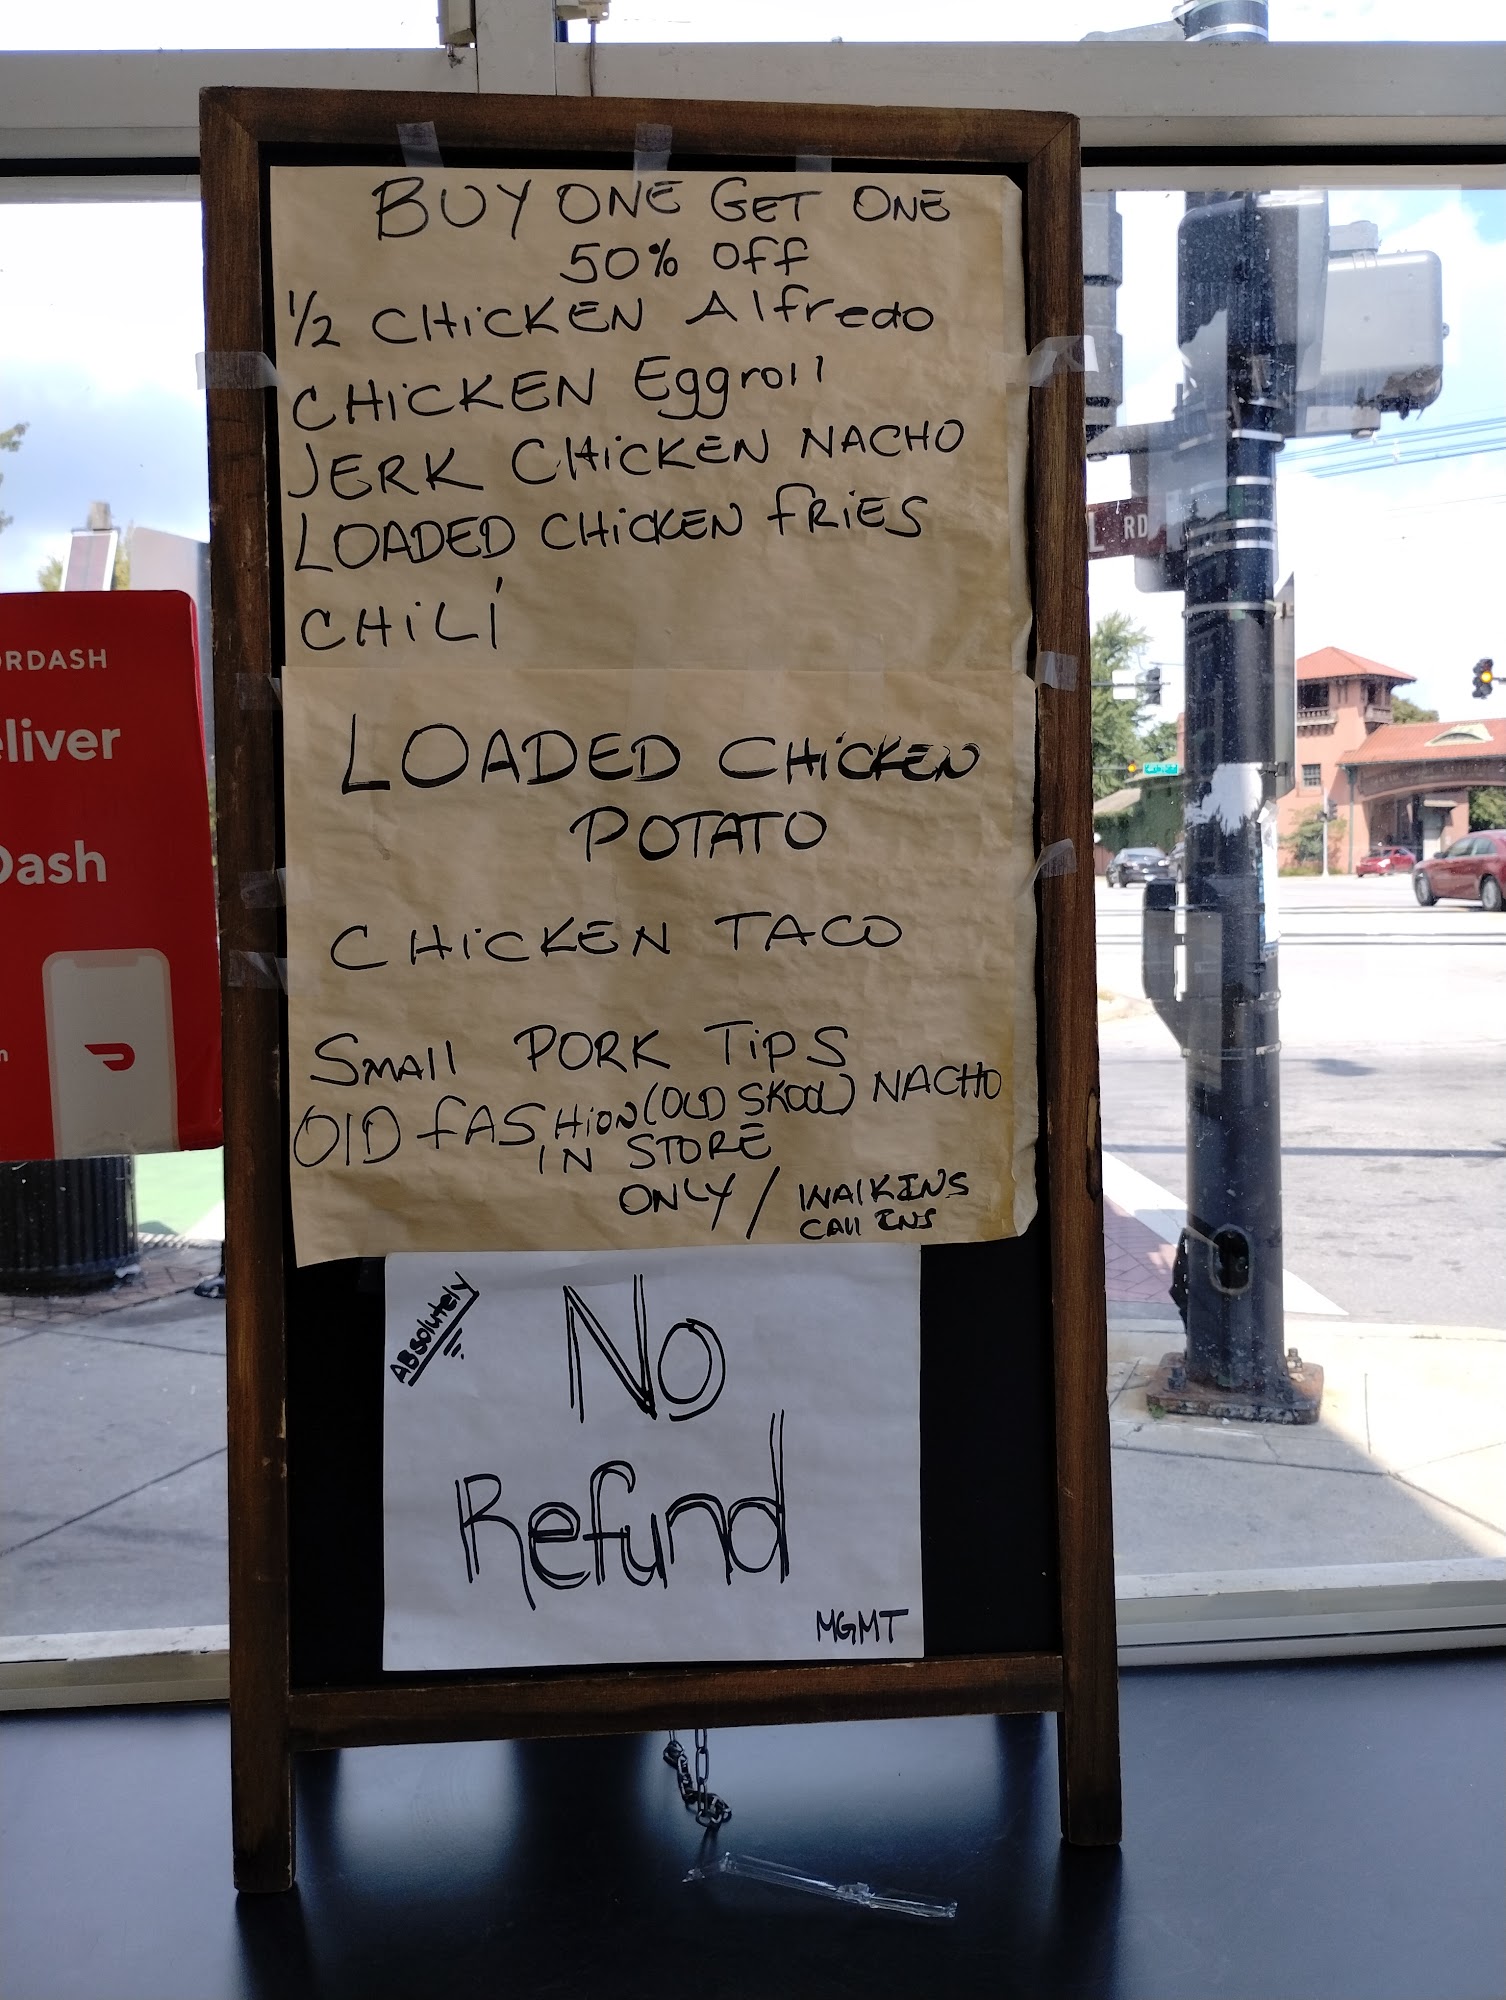 BUY ONE GET ONE
50% OFF
1/2 CHiCKEN Alfredo
CHiCKEN Eggroll
JERK CHiCKEN NACHO
LOADED CHiCKEN FRiES
CHiLI
LOADED CHiCKEN
POTATO
CHiCKEN TACO
SMAll PORK TiPS
OlD fASHiON (OLD SKOOL) NACHO
IN STORE
ONLY / WAlKINS
CAll INS
ABSolutely
No
Refund
MGMT
ORDASH
eliver
Dash
L RD